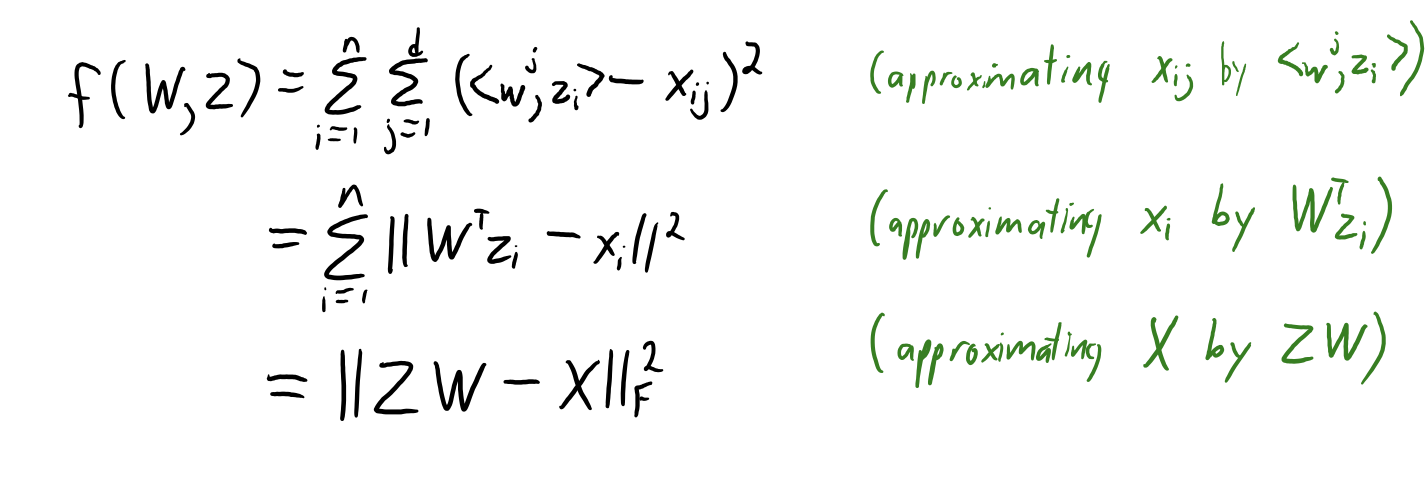 f(W,Z) = \sum_{i=1}^{n} \sum_{j=1}^{d} (<w^j, z_i> - x_{ij})^2 (approximating x_{ij} by <w^j, z_i>)
= \sum_{i=1}^{n} ||W^T z_i - x_i||^2 (approximating x_i by W^T z_i)
= ||ZW - X||_F^2 (approximating X by ZW)